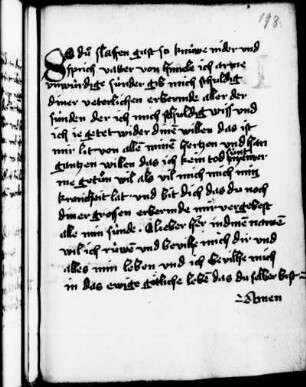 198.
So du slaffen gast so knüwe nider vnd
sprich vatter von himele ich arme
vnwürdige sünder gib mich schuldig
diner veterlichen erbermde aller der
sünden der ich mich schuldig wiss vnd
ich ie getet wider dinen willen das ist
mir lait von alle minen hertzen vnd han
gantzen willen das ich kein tod sünd niemer
me getün wil als vil mich min
krancheit lat vnd bit dich das du noch
diner grossen erbermde mir vergebest
alle min sünde. A lieber her in dinen namen
wil ich rüwen vnd bevilhe mich dir vnd
alles min leben vnd ich bevilhe mich
in das ewige götliche leben das du selber bist
Amen